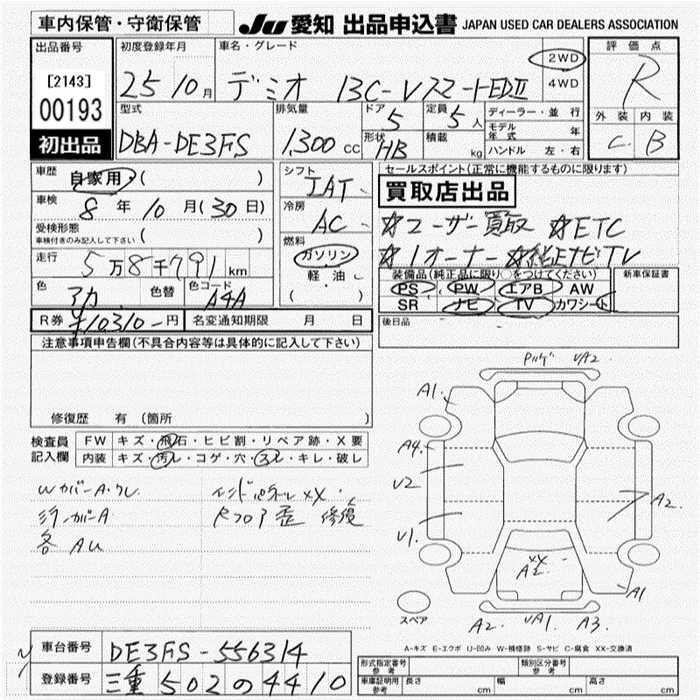 車内保管・守衛保管
JU 愛知 出品申込書 JAPAN USED CAR DEALERS ASSOCIATION
出品番号
[2143]
00193
初出品
初度登録年月
25 10月
車名・グレード
デミオ 13C-Vスマートエディ
2WD
4WD
評価点
R
外装 内装
C B
型式
DBA-DE3FS
排気量
1,300 cc
ドア
5
定員
5 人
形状
HB
積載
kg
ディーラー・並行
モデル年式 年
ハンドル 左・右
車歴
自家用 ( )
車検
8年 10月(30日)
受検形態
車検付きのみ記入して下さい ( )
走行
5万8千791 km
色
アカ
色替
色コード
A4A
R券 ¥10310-円
名変通知期限 月 日
シフト
IAT
冷房
AC
燃料
ガソリン
軽油
( )
セールスポイント(正常に機能するものに限ります)
買取店出品
☆ユーザー買取 ☆ETC
☆1オーナー ☆純正ナビTV
装備品(純正品に限り○をつけてください)
PS PW エアB AW
SR ナビ TV カワシート
新車保証書
後日品
注意事項申告欄(不具合内容等は具体的に記入して下さい)
修復歴 有 (箇所
検査員
記入欄
FW キズ・飛石・ヒビ割・リペア跡・X要
内装 キズ・汚レ・コゲ・穴・スレ・キレ・破レ
Wカバー A・クレ
ミラーカバーA
各 AU
インドパネル XX・
Rフロア歪 修復
VA2
A1
A4
V2
V1
A2
XX
A1
A2
VA1
A3
スペア
A-キズ E-エクボ U-凹み W-補修跡 S-サビ C-腐食 XX-交換済
車台番号
DE3FS-556314
登録番号
三重 502 の 4410
形式指定番号
参考
類別区分番号
参考
車庫証明用
参考
長さ cm
幅 cm
高さ cm